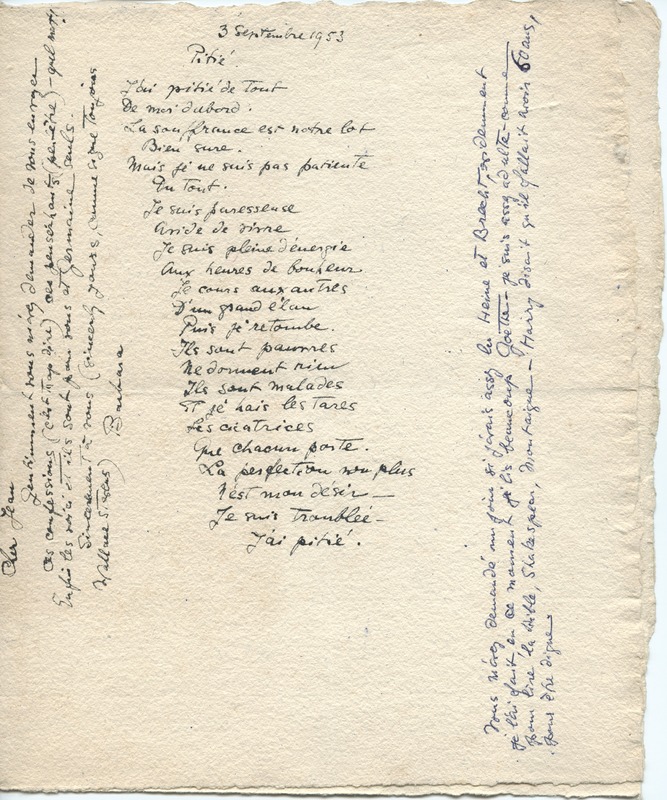 3 Septembre 1953
Pitié.
J'ai pitié de tout
De moi d'abord.
La souffrance est notre lot
Bien sure.
Mais je ne suis pas patiente
Du tout.
Je suis paresseuse
Avide de vivre
Je suis pleine d'énergie
Aux heures de bonheur
Je cours aux autres
D'un grand élan
Puis je retombe.
Ils sont pauvres
Ne dorment rien
Ils sont malades
Et je hais les tares
Les cicatrices
Que chacun porte.
La perfection non plus
N'est mon désir —
Je suis troublée —
J'ai pitié.
Cher Jean
Gentimment vous m'avez demander de vous envoyer
ces confessions (c'est trop dire) ces penserhants (pensière) — quel mot!
Enfin les voici et ils sont pour vous et Germaine seuls.
Sincèrement à vous (Sincerely yours, comme signe toujours
Wallace Stevens) Barbara
Vous m'avez demandé un jour si j'avais assez lu Heine et Brecht, évidemment
je l'ai fait en ce moment je lis beaucoup Goethe — je suis assez adulte — comme
pour lire la Bible, Shakespear, Montaigne — Harry disait qu'il fallait avoir 60 ans,
pour être digne.